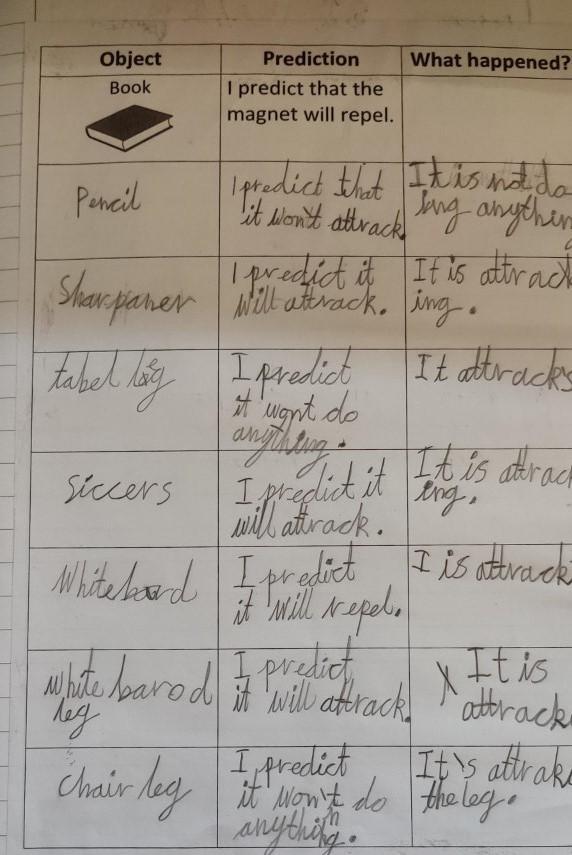 Object Prediction What happened?
Book I predict that the
magnet will repel.
Pencil I predict that It is not do
it won't attrack ing anythin
Sharpaner I predict it It is attrack
will attrack. ing.
tabel leg I predict It attracks
it wont do
anything.
Siccers I predict it It is attrac
will attrack. ing.
Whiteboard I predict I is attrack
it will repel.
white barod I predict It is
leg it will attrack. attrack
Chair leg I predict It's attrak
it won't do the leg.
anything.